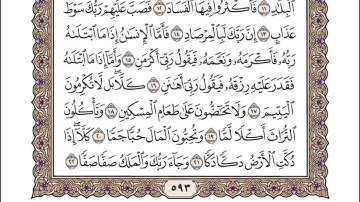 ٱلۡبِلَٰدِ ١١ فَأَكۡثَرُواْ فِيهَا ٱلۡفَسَادَ ١٢ فَصَبَّ عَلَيۡهِمۡ رَبُّكَ سَوۡطَ
عَذَابٍ ١٣ إِنَّ رَبَّكَ لَبِٱلۡمِرۡصَادِ ١٤ فَأَمَّا ٱلۡإِنسَٰنُ إِذَا مَا ٱبۡتَلَىٰهُ
رَبُّهُۥ فَأَكۡرَمَهُۥ وَنَعَّمَهُۥ فَيَقُولُ رَبِّيٓ أَكۡرَمَنِ ١٥ وَأَمَّآ إِذَا مَا ٱبۡتَلَىٰهُ
فَقَدَرَ عَلَيۡهِ رِزۡقَهُۥ فَيَقُولُ رَبِّيٓ أَهَٰنَنِ ١٦ كَلَّاۖ بَل لَّا تُكۡرِمُونَ
ٱلۡيَتِيمَ ١٧ وَلَا تَحَٰٓضُّونَ عَلَىٰ طَعَامِ ٱلۡمِسۡكِينِ ١٨ وَتَأۡكُلُونَ
ٱلتُّرَاثَ أَكۡلٗا لَّمّٗا ١٩ وَتُحِبُّونَ ٱلۡمَالَ حُبّٗا جَمّٗا ٢٠ كَلَّآۖ إِذَا
دُكَّتِ ٱلۡأَرۡضُ دَكّٗا دَكّٗا ٢١ وَجَآءَ رَبُّكَ وَٱلۡمَلَكُ صَفّٗا صَفّٗا ٢٢
٥٩٣